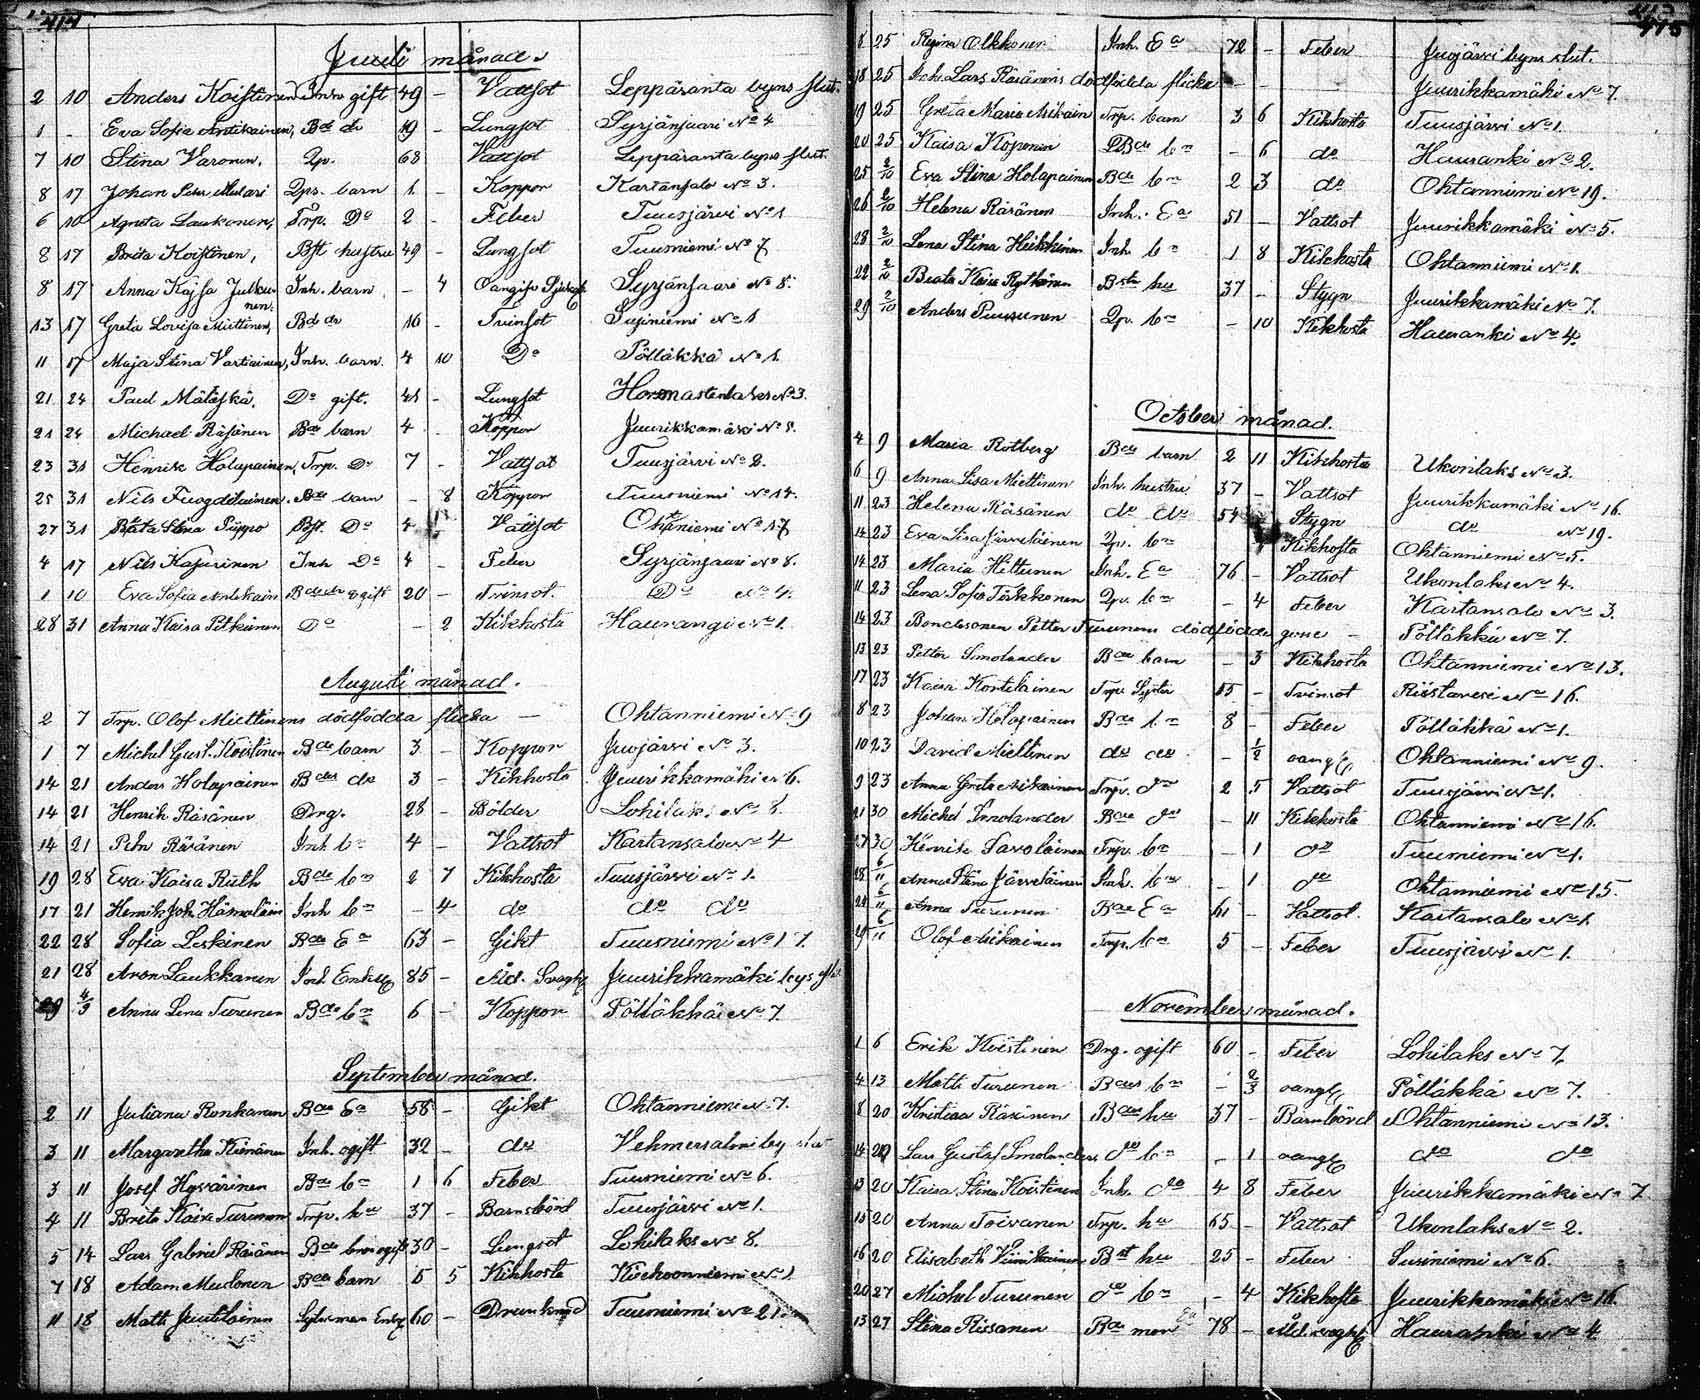 414
Juuli månad.
2 10 Anders Koistinen Inh gift 49 - Vattsot Leppäranta byns slut.
1 - Eva Sofia Antikainen, Bd dr 19 - Lungsot Syrjänsaari No 4
7 10 Stina Varonen, Qp. 68 Vattsot Leppäranta byns slut.
8 17 Johan Petter Mutari Qps. barn 1 - Koppor Kartansalo No 3.
6 10 Agneta Laukonen, Trp. Do 2 - Feber Tuusjärvi No 1
8 17 Brita Koistinen, Bst hustru 49 - Lungsot Tuusniemi No 7
8 17 Anna Kajsa Julkunen. Inh. barn - 4 Oangifv. Sjukd. Syrjänsaari No 8.
13 17 Greta Lovisa Miettinen, Bd dr 16 - Tvinsot Susiniemi No 1
11 17 Maja Stina Vartiainen, Inh. barn. 4 10 Do Pölläkkä No 1.
21 24 Paul Mätäskä. Do gift. 41 - Lungsot No 3.
21 24 Michael Räsänen Bde barn 4 - Koppor Juurikkamäki No 8.
23 31 Henrik Holapainen, Trp. Do 7 - Vattsot Tuusjärvi No 2.
25 31 Nils Bde barn - 8 Koppor Tuusniemi No 14.
27 31 Beata Stina Piippo Bst. Do 4 - Vattsot Ohtaniemi No 17
4 17 Nils Kasurinen Inh Do 4 - Feber Syrjänsaari No 8.
1 10 Eva Sofia Antikain Bde dr ogift 20 - Tvinsot. Do No 4.
28 31 Anna Kaisa Pitkänen Do - 2 Kikhosta Haurangi No 1.
Augusti månad.
2 7 Trp. Olof Miettinens dödfödda flicka - Ohtanniemi No 9
1 7 Michel Gust. Koistinen Bde barn 3 - Koppor Juojärvi No 3.
14 21 Anders Holapainen Bde do 3 - Kikhosta Juurikkamäki No 6.
14 21 Henrik Räsänen Drng. 28 - Bölder Lohilaks No 8.
14 21 Petr Räsänen Inh bn 4 - Vattsot Kartansalo No 4
19 28 Eva Kaisa Ruth Bde bn 2 7 Kikhosta Tuusjärvi No 1.
17 21 Henrik Joh. Hämäläin Inh bn - 4 do do do
22 28 Sofia Leskinen Bde Ea 63 - Gikt Tuusniemi No 17.
21 28 Aron Laukkanen Inh Enkl. 85 - Åld. Svagh. Juurikkamäki bys slut
29 4/9 Anna Lena Turunen Bde bn 6 - Koppor Pölläkkä No 7.
September månad.
2 11 Juliana Ronkanen Bde Ea 58 - Gikt Ohtanniemi No 7.
3 11 Margaretha Kinnänen Inh. ogift 32 - do Vehmersalmi by slut
3 11 Josef Hyvärinen Bde bn 1 6 Feber Tuusniemi No 6.
4 11 Brita Kaisa Turunen Trp. hu 37 - Barnsbörd Tuusjärvi No 1.
5 14 Lars Gabriel Räsänen Bde bror ogift 30 - Lungsot Lohilaks No 8.
7 18 Adam Mustonen Bde barn 5 5 Kikhosta No 1
11 18 Matts Juutilainen Enkl 60 - Drunknad Tuusniemi No 21.
415
8 25 Regina Olkkonen Inh. Ea 72 - Feber Juojärvi byns slut.
18 25 Inh. Lars Räsänens dödfödda flicka - - Juurikkamäki No 7.
19 25 Greta Maria Miikain Trp. barn 3 6 Kikhosta Tuusjärvi No 1.
20 25 Kaisa Koponen Bde bn - 6 do Hauranki No 2.
25 2/10 Eva Stina Holapainen Bde bn 2 3 do Ohtanniemi No 19.
26 2/10 Helena Räsänen Inh. Ea 51 - Vattsot Juurikkamäki No 5.
28 2/10 Lena Stina Heikkinen Inh. bn 1 8 Kikhosta Ohtanniemi No 1.
22 2/10 Beata Kaisa Rytkönen Bst hu 37 - Stygn Juurikkamäki No 7.
29 2/10 Anders Puurunen Qp. bn - 10 Kikhosta Hauranki No 4.
October månad.
4 9 Maria Rotberg Bde barn 2 11 Kikhosta Ukonlaks No 3.
6 9 Anna Lisa Miettinen Inh. hustru 37 - Vattsot Juurikkamäki No 16.
11 23 Helena Räsänen do do 54 Stygn do No 19.
14 23 Eva Lisa Järveläinen Qp. bn Kikhosta Ohtanniemi No 5.
14 23 Maria Hiltunen Inh. Ea 76 - Vattsot Ukonlaks No 4.
11 23 Lena Sofia Törkkonen Qp. bn - 4 Feber Kartansalo No 3.
14 23 Bondesonen Petter Turunens dödfödde gosse - Pölläkkä No 7.
13 23 Petter Smolander Bde barn - 3 Kikhosta Ohtanniemi No 13.
17 23 Kaisa Kontilainen Trps Syster 15 - Tvinsot Riistavesi No 16.
8 23 Johan Holapainen Bde bn 8 - Feber Pölläkkä No 1.
10 23 David Miettinen do do - 1/2 oangf. Ohtanniemi No 9.
9 23 Anna Greta Miikainen Trp. do 2 5 Vattsot Tuusjärvi No 1.
21 30 Michel Smolander Bde do - 11 Kikhosta Ohtanniemi No 16.
27 30 Henrik Tavolainen Trp. bn - 1 do Tuusniemi No 1.
28 6/11 Anna Stina Järveläinen Inh. bn - 1 do Ohtanniemi No 15.
24 6/11 Anna Turunen Bde Ea 61 - Vattsot. Kartansalo No 1.
29 6/11 Olof Miikainen Trp. bn 5 - Feber Tuusjärvi No 1.
November månad.
1 6 Erik Koistinen Drg. ogift 60 - Feber Lohilaks No 7.
4 13 Matts Turunen Bdes bn - 2/3 oangf Pölläkkä No 7.
8 20 Kristina Räsänen Bde hu 37 - Barnsbörd Ohtanniemi No 13.
14 20 Lars Gustaf Smolander do bn - 1 oangf do do
13 20 Kaisa Stina Koistinen Inh. do 4 8 Feber Juurikkamäki No 7
15 20 Anna Toivanen Trp. hu 65 - Vattsot Ukonlaks No 2.
16 20 Elisabeth Bst hu 25 - Feber Susiniemi No 6.
20 27 Michel Turunen do bn - 4 Kikhosta Juurikkamäki No 16.
13 27 Stina Rissanen Bde mor Ea 78 - Åld. svaghet Hauranki No 4.